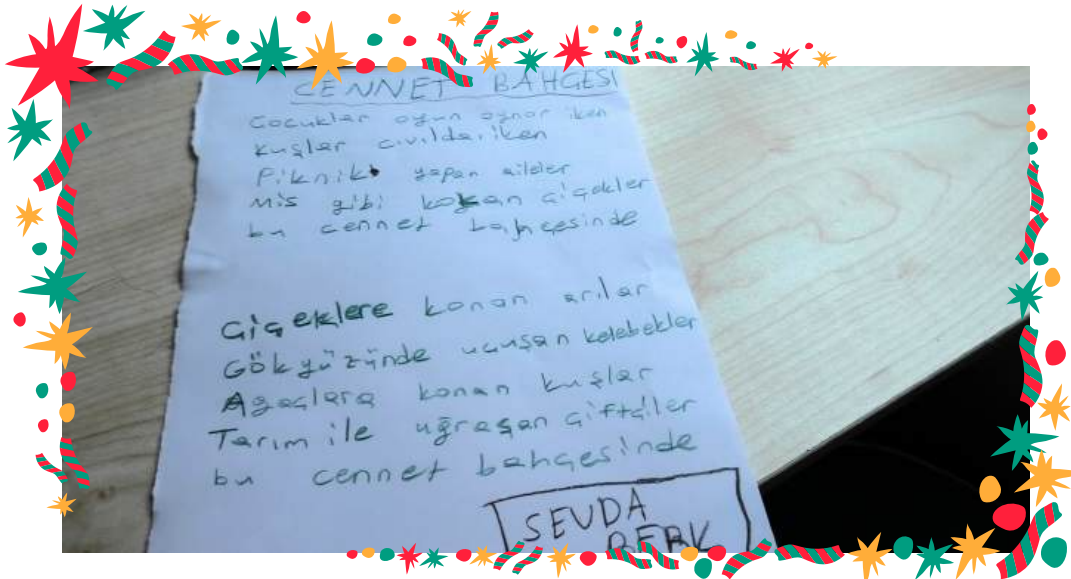 CENNET BAHÇESİ
Çocuklar oyun oynar iken
kuşlar cıvıldar iken
Piknik yapan aileler
Mis gibi kokan çiçekler
bu cennet bahçesinde
Çiçeklere konan arılar
Gökyüzünde uçuşan kelebekler
Ağaçlara konan kuşlar
Tarım ile uğraşan çiftçiler
bu cennet bahçesinde
SEVDA
BERK